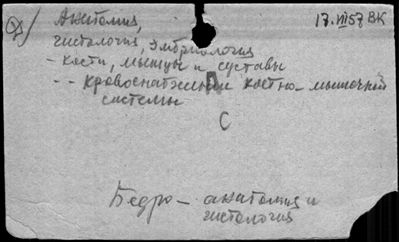 Анатомия,
гистология, эмбриология
17.VII 57 ВК
- кости, мышцы и суставы
-- кровоснабжение костно-мышечной
системы
А
С
Бедро - анатомия и
гистология